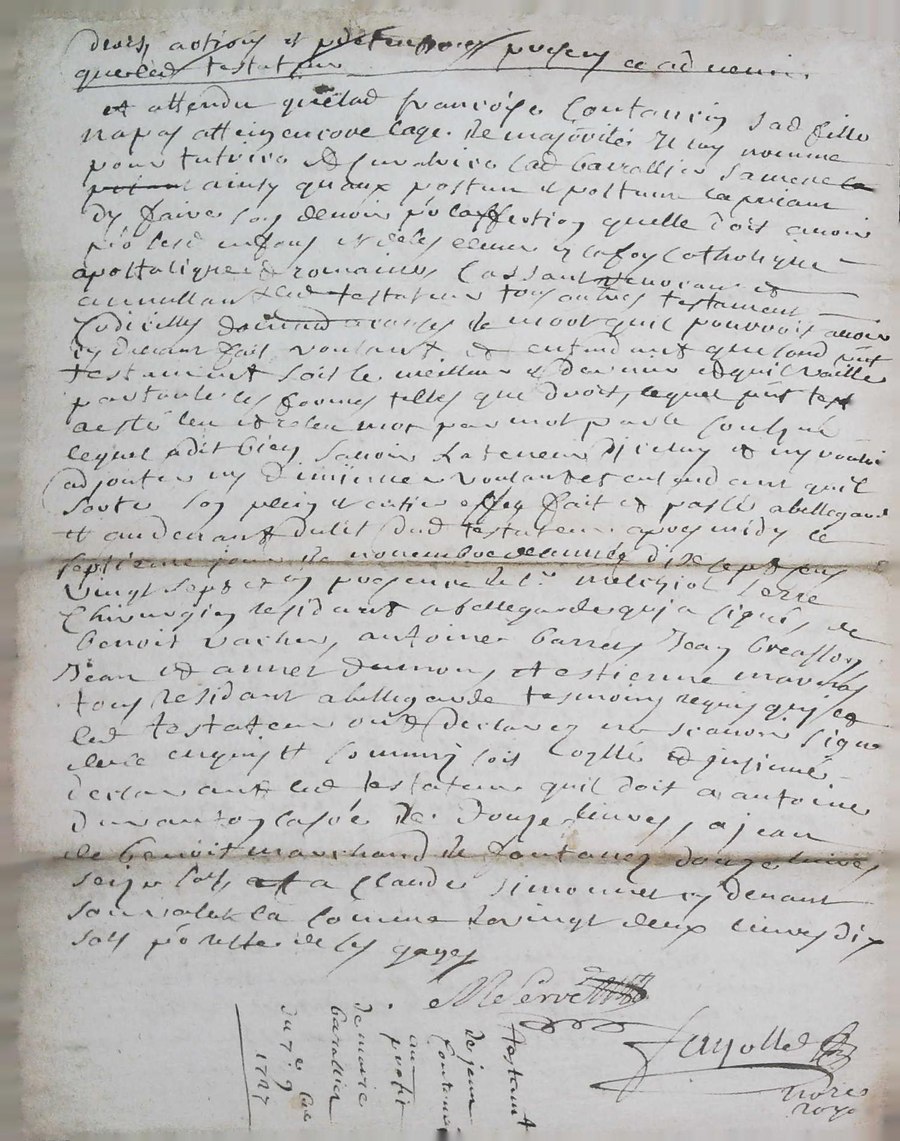 droits, actions et prétentions présens et advenir.
quelad testateur
et attendu quelad francoise Contaurin sad fille
na pas attein encore lage de majorité Il luy nomme
pour tutrice et curatrice lad barallier sa mere la
priant ainsy quaux postum et postume la priant
dy faire son devoir pr laffection quelle doit avoir
pr lesd enfans et de les elever en la foy Catholique
apostolique et romaine Cassant revocant et
annullant led testateur tous autres testament
Codicilles donnad a cause de mort quil pouvoit avoir
cy devant fait voulant et entendant que sond pnt
testament soit le meilleur et dernier et quil vaille
par toutes les formes telles que droit, lequel pnt test
a esté leu et releu mot par mot par le
lequel a dit bien savoir la teneur dicelluy et ny vouloir
adjouter ny diminuer voulant et entendant quil
sorte son plein et entier effet fait et passé a bellegarde
et au devant du lit dud testateur apres midy le
septieme jour de novembre de lannée dix sept cens
vingt sept et en presence de sr melchiol serve
Chirurgien residant a bellegarde qui a signé, de
benoit vacher, antoine barret Jean breasson
Jean et annet dumons et estienne mavaras
tous residant a bellegarde tesmoins requis qui et
led testateur ont declarez ne scavoir signer
de ce enquis et sommez soit Collé et insinué
declarant led testateur quil doit a antoine
duranton la so[mm]e de douze livres, a jean
de benoit marchand de fontanes douze livres
seize sols, et a Claude simonnet cy devant
son valet la somme de vingt deux livres dix
sols pr reste de ses gages
M Serve
fayolle
nore
royal
testament
de jean
Contaurin
au profit
de marie
barallier
du 7e 9bre
1727